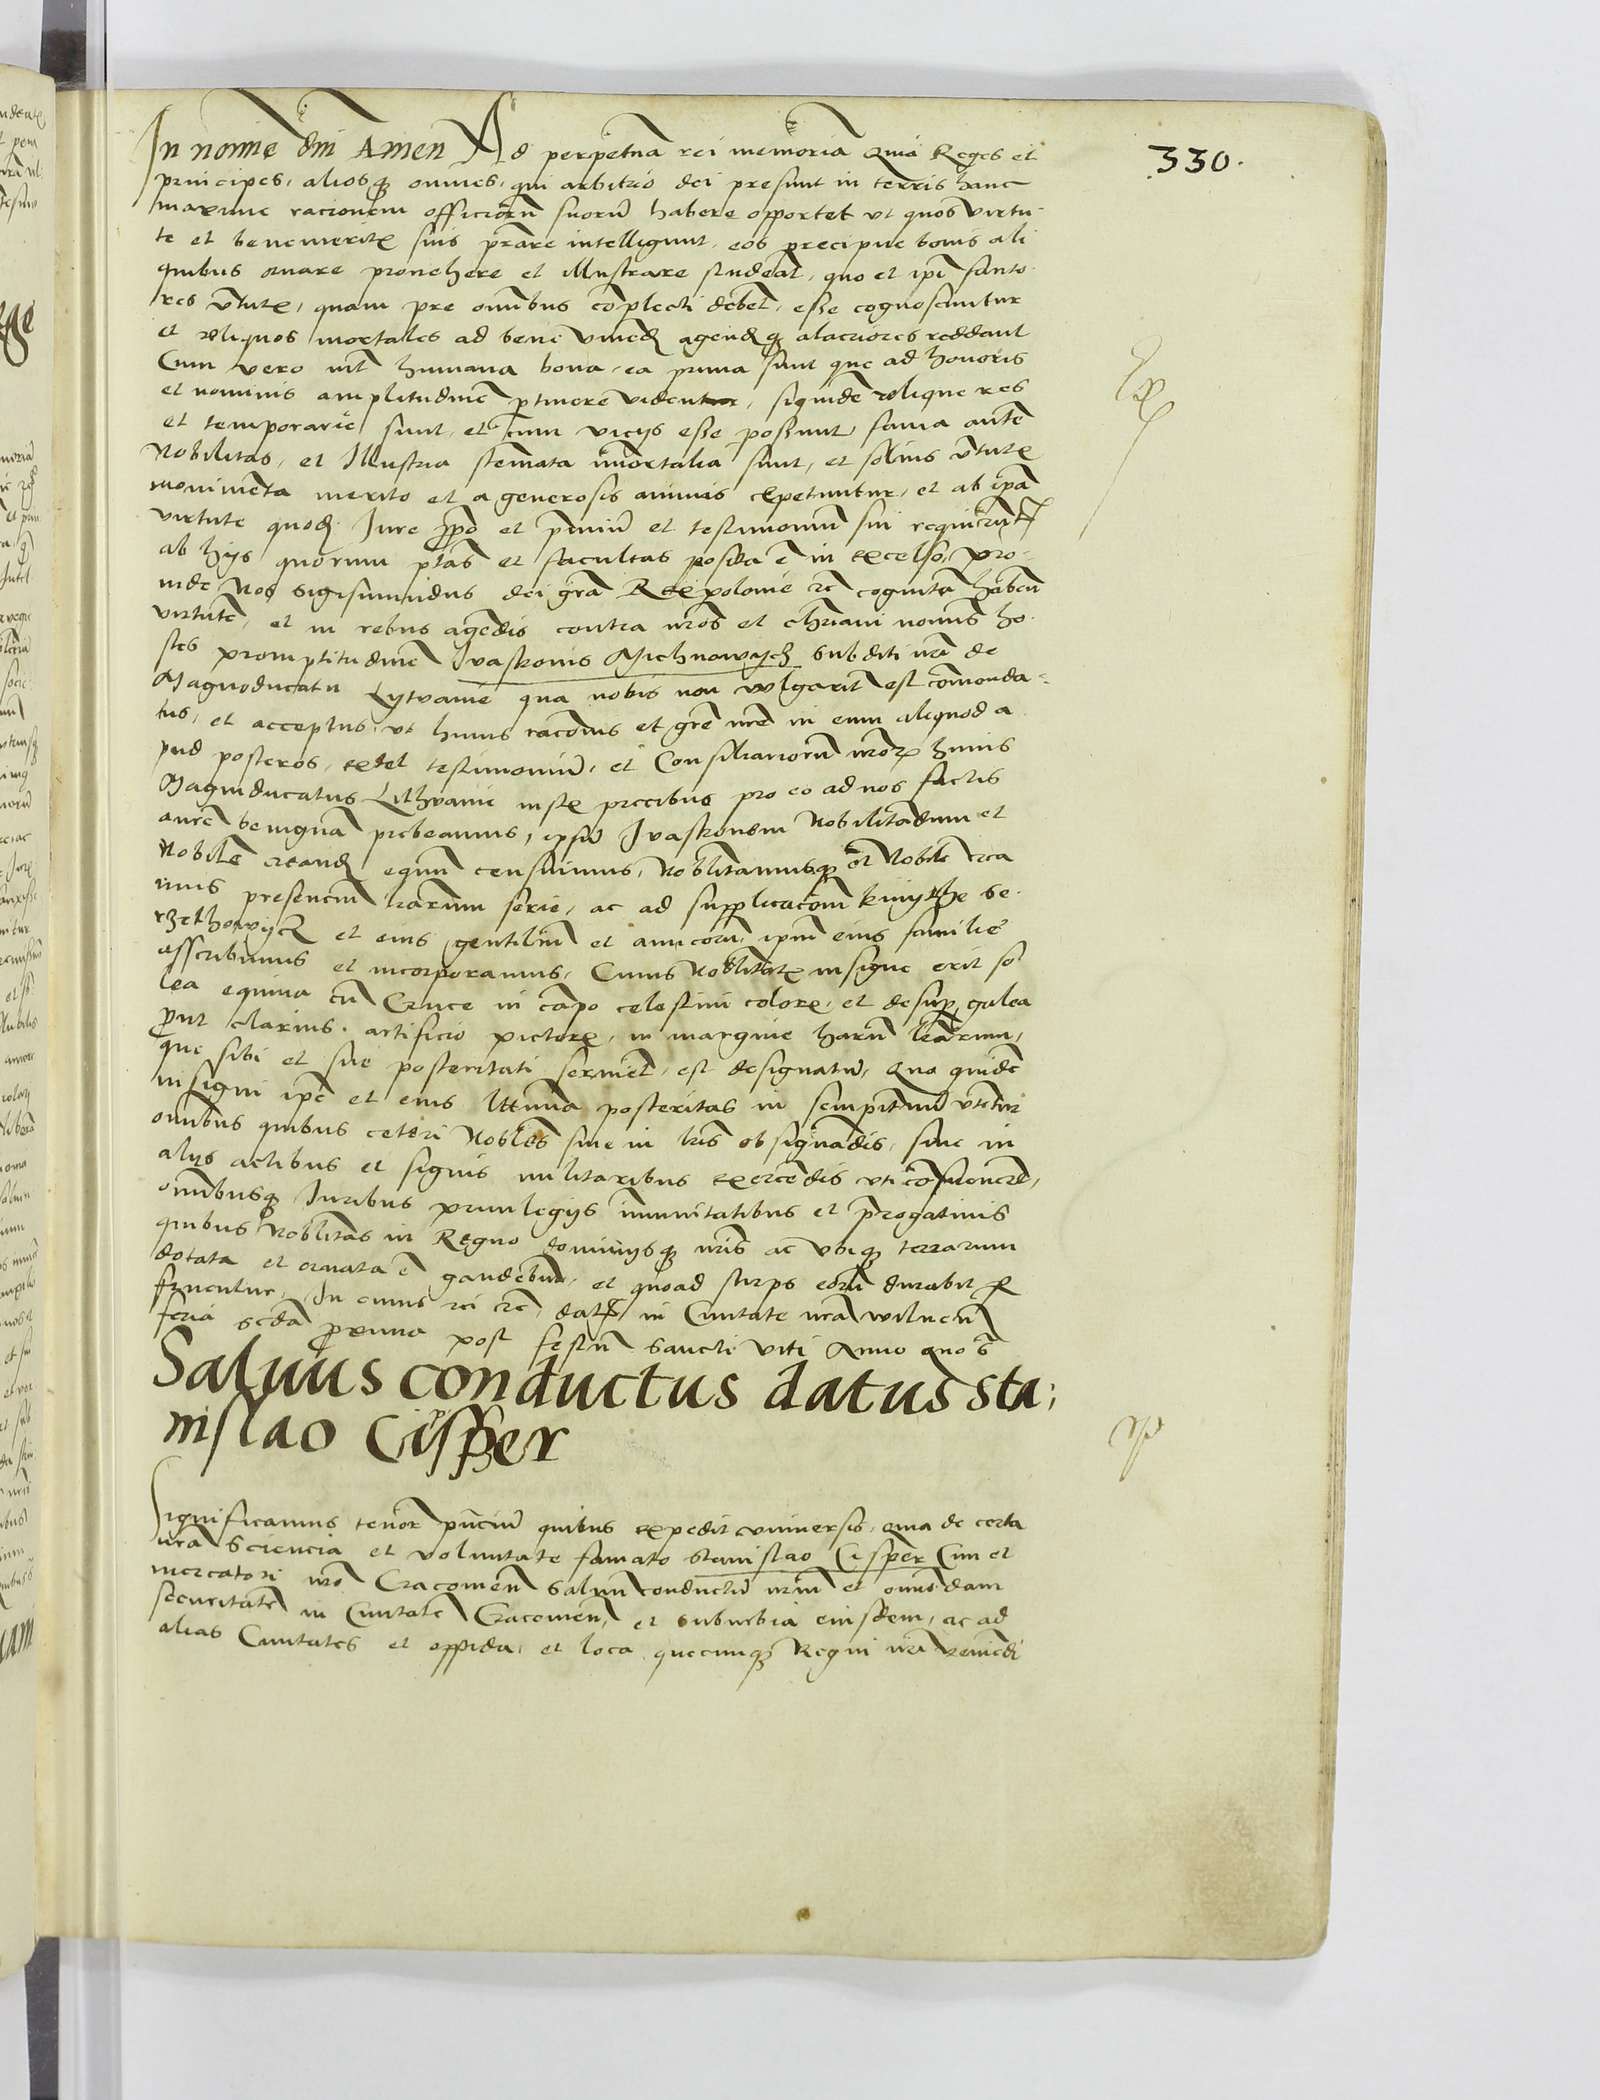 330.
In nomine dni Amen Ad perpetuā rei memoriā Quia Reges et
principes, aliosq omnes, qui arbitrio dei presunt in terris hanc
maxime racionem officiorū suorū habere opportet ut quos virtu-
te et benemeritis suis prare intelligunt, eos precipue bonis ali
quibus ornare provehere et illustrare studeāt, quo et ipi fauto
res vtutis, quam pre omībus cōplecti debēt, esse cognoscuntur
et reliquos mortales ad bene viuend agendq alacriores reddant
Cum vero int humana bona, ea prima sunt que ad honoris
et nominis amplitudinē ptinere videntur, siquidē relique res
et temporarie sunt, et cum vicijs esse possunt, fama autē
Nobilitas, et Illustria stemata imortalia sunt, et solius vtutis
monimēta merito et a generosis animis expetuntur, et ab ipa
virtute quodā Iure ppo et pmiū et testimoniū sui requirūt
ab hijs quorum ptas et facultas posita ē in excelso, pro-
inde Nos Sigismundus dei gra Rex polonie etc cognitā habeñ
virtutē, et in rebus agēdis contra nros et chriani nomīs ho-
stes promptitudinē Ivaskonis Michnowycz subditi nri de
Magnoducatu Lytvanie qua nobis non wlgarit est comenda-
tus, et acceptus, ut huius racōnis et gre nre in eum aliquod a
pud posteros, extet testimoniū, et Consiliariorū nror huius
Magniducatus Lithvanie iustis precibus pro eo ad nos factis
aurē benignā prebeamus, ipsū Ivaskonem Nobilitādum et
Nobilē creand equm censuimus, Nobilitamusq et Nobilē crea
mus presencium lrarum serie, ac ad supplicacōem kmythe Se
rzethowycz et eius gentiliū et amicorū, ipm eius familie
asscribimus et incorporamus, Cuius Nobilitatis insigne erit so
lea equina cū Cruce in cāpo celestini coloris, et desup galea
put clarius artificio pictoris, in margine harū lrarum,
que sibi et sue posteritati serviet, est designatū, Quo quidē
insigni ipe et eius ltima posteritas in sempitnū vtetur
omībus quibus ceteri Nobiles sive in lris obsignādis, sive in
alijs actibus et signis militaribus exercēdis uti consueuerūt,
omībusq Iuribus privilegijs imunitatibus et progativis
quibus Nobilitas in Regno dominijsq nris ac ubiq terrarum
dotata et ornata ē gaudebūt, et quoad stirps eorū durabit
fruentur, In cuius rei etc, datū in Civitate nra wilneñ
feria scda proxima post festū Sancti Viti Anno quo s
Saluus conductus datus Sta,
nislao Cipser
Significamus tenor pntiū quibus expedit vniversis, quia de certa
nra Sciencia et voluntate famato Stanislao Cipser Civi et
mercatori nro Cracovieñ Saluū conductū nrm et omīdam
securitatē in Civitate Cracovieñ, et suburbia eiusdem, ac ad
alias Civitates et oppida, et loca quecunq Regni nri veniedi